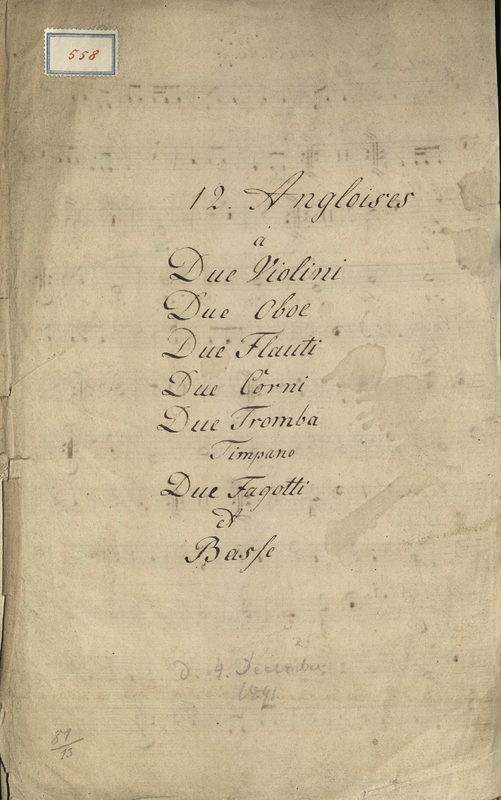 558
12. Angloises
á
Due Violini
Due Oboe
Due Flauti
Due Corni
Due Tromba
Timpano
Due Fagotti
et
Basse
d. 4. December
81/13